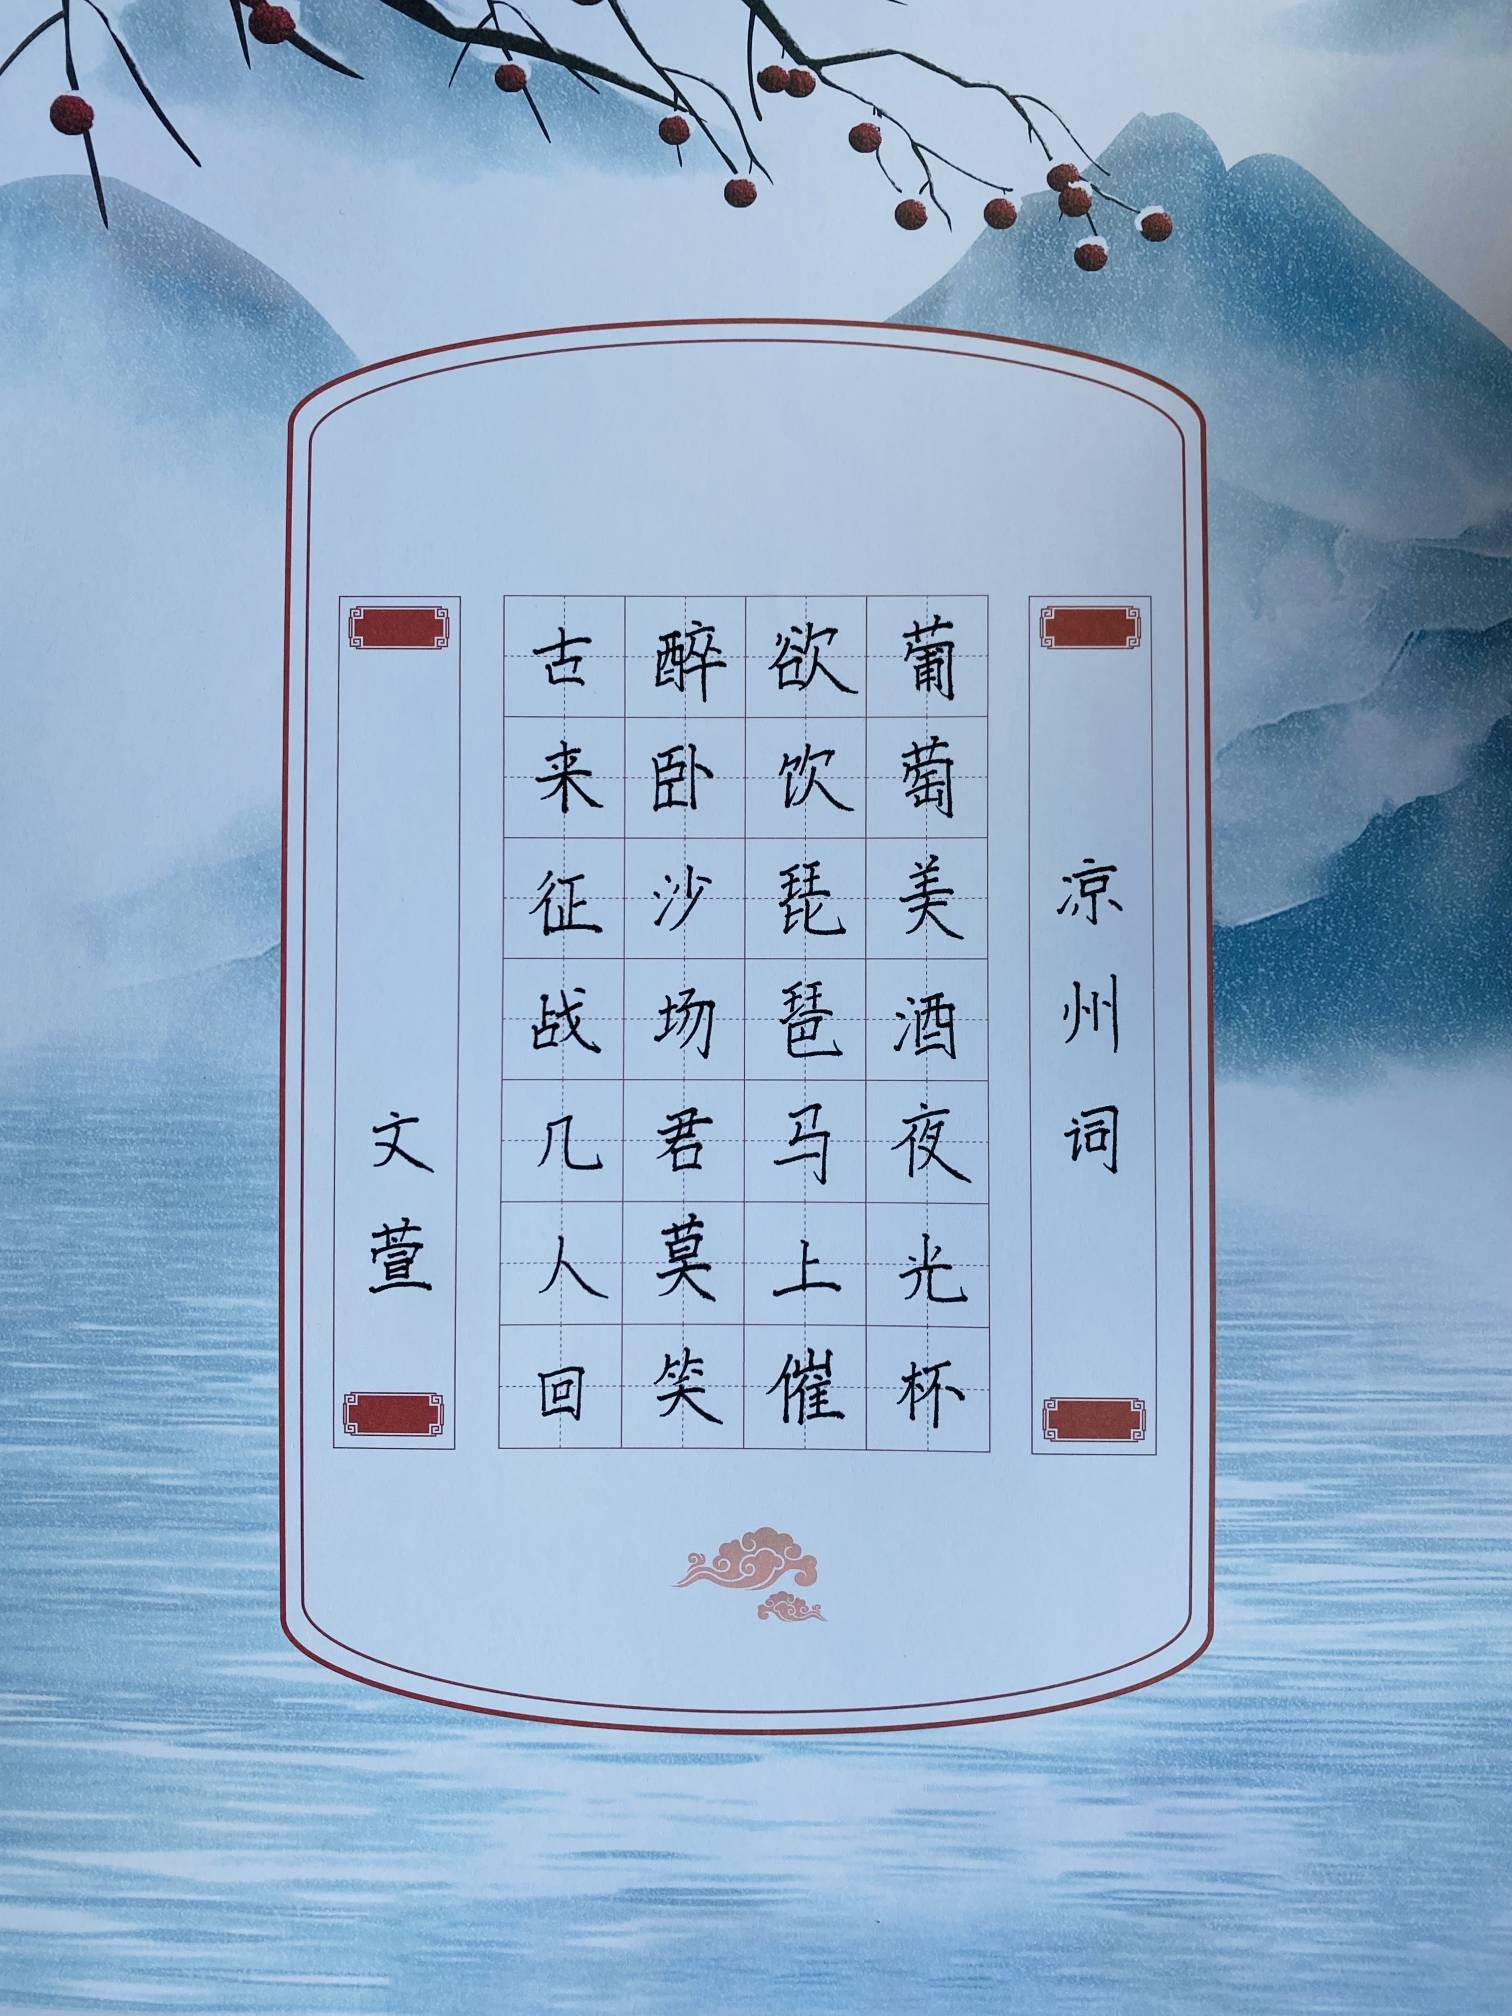 凉州词
葡萄美酒夜光杯
欲饮琵琶马上催
醉卧沙场君莫笑
古来征战几人回
文萱